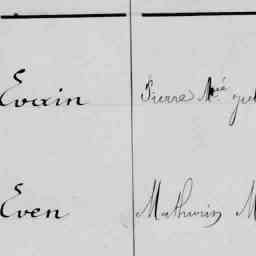 Evain Pierre M.
Even Mathurin M